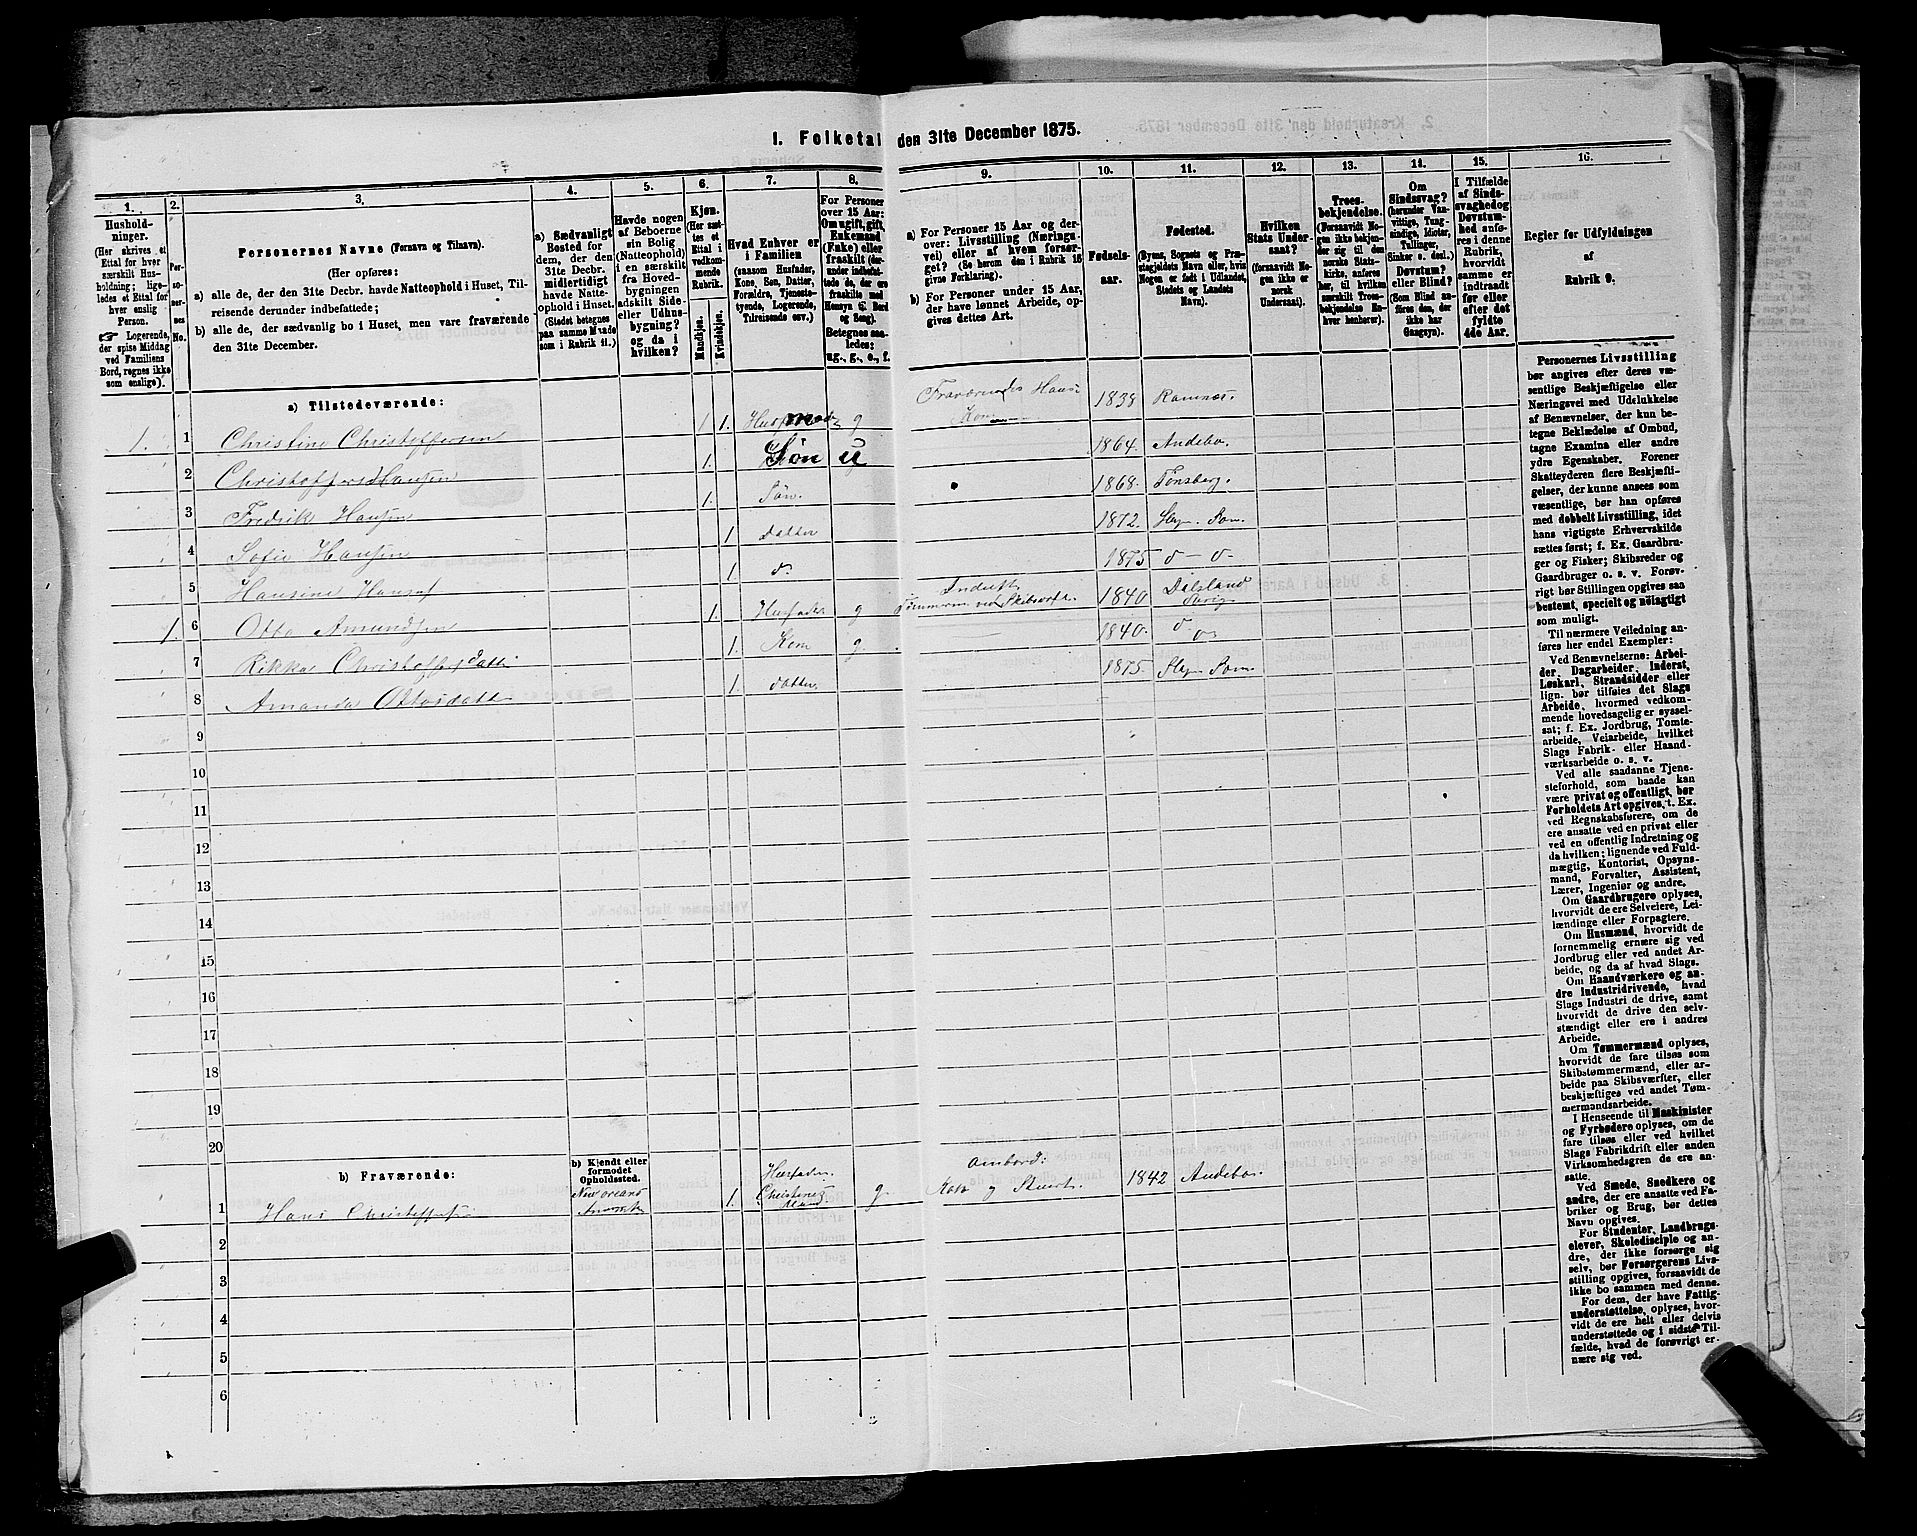 1. Folketal den 31te December 1875.
1.
Husholdninger.
(Her skrives et
Ettal for hver
særskilt Husholdning; ligeledes
et Ettal for
hver enslig
Person.
Logerende,
der spise Middag
ved Familiens
Bord, regnes ikke
som enslige).
2.
Personernes
No.
3.
Personernes Navne (Fornavn og Tilnavn).
(Her opføres:
a) alle de, der den 31te Decbr. havde Natteophold i Huset, Tilreisende
derunder indbefattede;
b) alle de, der sædvanlig bo i Huset, men vare fraværende
den 31te December.
4.
a) Sædvanligt
Bosted for
dem, der den
31te Decbr.
midlertidigt
havde Natteophold
i Huset.
(Stedet betegnes
paa samme Maade
som i Rubrik 11.)
5.
Havde nogen
af Beboerne
sin Bolig
(Natteophold)
i en særskilt
fra Hovedbygningen
adskilt Side-
eller Udhusbygning?
og da i
hvilken?
6.
Kjøn.
(Her sættes
et
Ettal i
vedkommende
Rubrik.
Mandkjøn.
Kvindekjøn.
7.
Hvad Enhver er
i Familien
(saasom Husfader,
Kone, Søn, Datter,
Forældre, Tjenestetyende,
Logerende,
Tilreisende osv.)
8.
For Personer
over 15 Aar:
Om ugift, gift,
Enkemand
(Enke) eller
fraskilt
Betegnes saaledes:
ug., g., e., f.
9.
a) For Personer 15 Aar og derover:
Livsstilling (Næringsvei)
eller af hvem forsørget?
(Se herom den i Rubrik 16
givne Forklaring).
b) For Personer under 15 Aar,
der have lønnet Arbeide, opgives
dettes Art.
10.
Fødselsaar.
11.
Fødested.
(Byens, Sognets og Præstegjeldets
Navn eller, hvis
Nogen er født i Udlandet,
Stedets og Landets
Navn).
12.
Hvilken
Stats Undersaat?
(forsaavidt Nogen
ikke er
norsk
Undersaat).
13.
Troesbekjendelse.
(Forsaavidt Nogen
ikke bekjender
sig til den
norske Statskirke,
anføres
her, til hvilken
særskilt Troesbekjendelse
Enhver
henhører).
14.
Om
Sindssvag?
(herunder Vanvittige,
Tungsindige,
Idioter,
Tullinger,
Sinker o. desl.)
Døvstum?
eller Blind?
(Som Blind anføres
den, der
ikke har
Gangsyn).
15.
I Tilfælde
af Sindssvaghed
og
Døvstumhed
anføres
i denne
Rubrik,
hvorvidt
samme er
indtraadt
før eller
efter det
fyldte
4de Aar.
16.
Regler for Udfyldningen
af
Rubrik 9.
a) Tilstedeværende:
1. 1 Christine Christoffersen 1 1. Husmoder g Fraværendes Hans Kone 1838 Ramnæs.
2 Christoffersen Hansen 1. Søn u 1864. Andebo.
3 Fredrik Hansen 1. Søn. 1868. Tønsberg.
4 Sofie Hansen 1 Datter 1872. Slagn Som.
5 Hansine Hans 1 d. 1875 d - d-
1. 6 Otto Amundsen 1. Husfader g Inderst Tømmerm ved Skibsværft. 1840 Dalsland
7 Rikka Christoffersdatt 1. Kone g. 1840. d
8 Amanda Ottosdatt 1. datter. 1875. Slagn Som.
9
10
11
12
13
14
15
16
17
18
19
20
b) Fraværende:
b) Kjendt eller
formodet
Opholdssted.
1 Hans Christoffersen New orleans Amerika 1. Husfader Christines Mand g. ombord: Kok og Stuert. 1842 Andebo.
2
3
4
5
6
Personernes Livsstilling
bør angives efter deres væsentlige
Beskjæftigelse eller
Næringsvei med Udelukkelse
af Benævnelser, der kun betegne
Beklædelse af Ombud,
tagne Examina eller andre
ydre Egenskaber. Forener
Skatteyderen flere Beskjæftigelser,
der kunne ansees som
væsentlige, bør han opføres
med dobbelt Livsstilling, idet
hans vigtigste Erhvervskilde
sættes først; f. Ex. Gaardbruger
og Fisker; Skibsreder og
Gaardbruger o. s. v. Forøvrigt
bør Stillingen opgives saa
bestemt, specielt og nøiagtigt
som muligt.
Til nærmere Veiledning anføres
her endel Exempler:
Ved Benævnelserne: Arbeider,
Dagarbeider, Inderst,
Løskarl, Strandsidder eller
lign. bør tilføies det Slags
Arbeide, hvormed vedkommende
hovedsagelig er sysselsat;
f. Ex. Jordbrug, Tomtearbeide,
Veiarbeide, hvilket
Slags Fabrik- eller Haandværksarbeide
o. s. v.
Ved alle saadanne Tjenesteforhold,
som baade kan
være privat og offentligt, bør
Forholdets Art opgives, t. Ex.
ved Regnskabsførere, om de
ere ansatte ved en privat eller
ved en offentlig Indretning og
da hvilken; lignende ved Fuldmægtig,
Kontorist, Opsynsmand,
Forvalter, Assistent,
Lærer, Ingeniør og andre.
Om Gaardbrugere oplyses,
hvorvidt de ere Selveiere, Leilændinge
eller Forpagtere.
Om Husmænd, hvorvidt de
fornemmelig ernære sig ved
Jordbrug eller ved andet Arbeide,
og da af hvad Slags.
Om Haandværkere og andre
Industridrivende, hvad
Slags Industri de drive, samt
hvorvidt de drive den selvstændigt
eller ere i andres
Arbeide.
Om Tømmermænd oplyses,
hvorvidt de fare tilsøs som
Skibstømmermænd, eller arbeide
paa Skibsværfter, eller
beskjæftiges ved andet Tømmermandsarbeide.
I Henseende til Maskinister
og Fyrbødere oplyses, om de
fare tilsøs eller ved hvilket
Slags Fabrikdrift eller anden
Virksomhedsgren de ere ansatte.
Ved Smede, Snedkere og
andre, der ere ansatte ved Fabriker
og Brug, bør dettes
Navn opgives.
For Studenter, Landbrugselever,
Skoledisciple og andre,
der ikke forsørge sig
selv, bør Forsørgerens Livsstilling
opgives, forsaavidt de
ikke bo sammen med denne.
For dem, der have Fattigunderstøttelse,
oplyses, hvorvidt
de ere helt eller delvis
understøttede og i sidste Tilfælde,
hvad de forøvrigt ernære
sig ved.